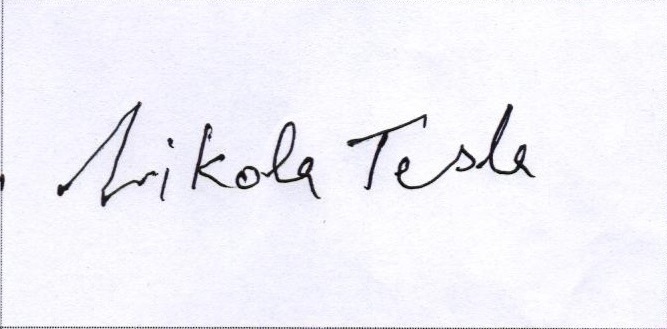 Nikola Tesla